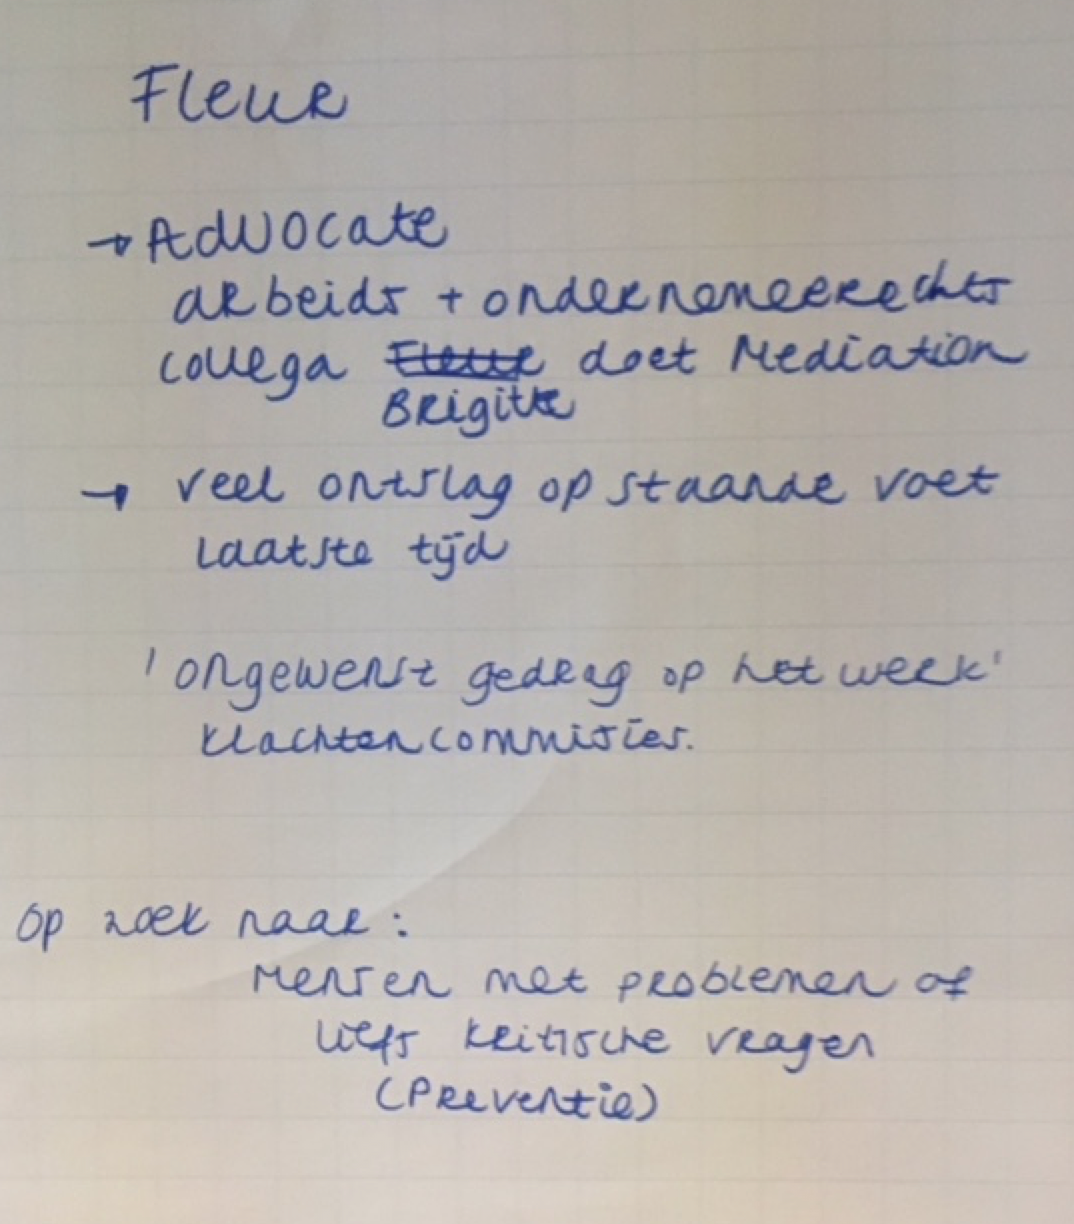 Fleur
→ Advocate
arbeids + ondernemeerechts
collega Fleur doet Mediation
Brigitte
→ veel ontslag op staande voet
laatste tijd
'ongewenst gedrag op het werk'
klachtencommissies.
Op zoek naar:
Mensen met problemen of
liefs kritische vragen
(Preventie)